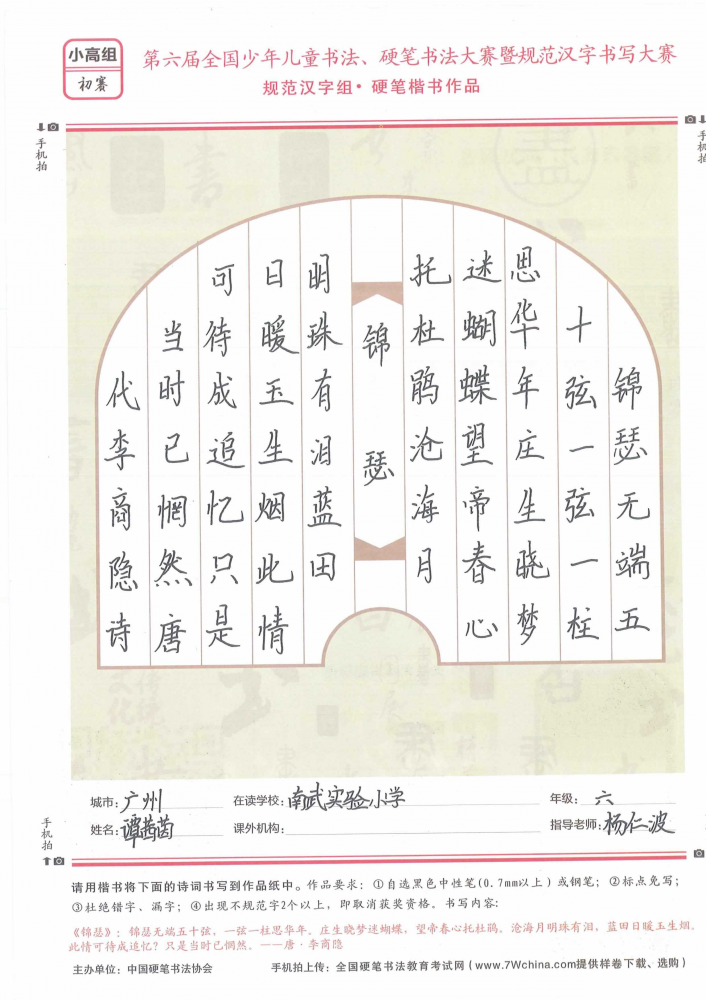 小高组
初赛
第六届全国少年儿童书法、硬笔书法大赛暨规范汉字书写大赛
规范汉字组·硬笔楷书作品
手机拍
手机拍
锦瑟无端五
十弦一弦一柱
思华年庄生晓梦
迷蝴蝶望帝春心
托杜鹃沧海月
锦瑟
明珠有泪蓝田
日暖玉生烟此情
可待成追忆只是
当时已惘然唐
代李商隐诗
城市:广州
在读学校:南武实验小学
年级:六
姓名:谭茜茵
课外机构:
指导老师:杨仁波
手机拍
请用楷书将下面的诗词书写到作品纸中。作品要求:①自选黑色中性笔(0.7mm以上)或钢笔;②标点免写;
③杜绝错字、漏字;④出现不规范字2个以上,即取消获奖资格。书写内容:
《锦瑟》:锦瑟无端五十弦,一弦一柱思华年。庄生晓梦迷蝴蝶,望帝春心托杜鹃。沧海月明珠有泪,蓝田日暖玉生烟。
此情可待成追忆?只是当时已惘然。——唐·李商隐
主办单位:中国硬笔书法协会
手机拍上传:全国硬笔书法教育考试网(www.7Wchina.com提供样卷下载、选购)